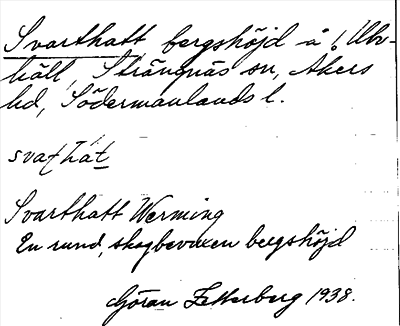 Svarthatt, bergshöjd å f. Ulv-
häll, Strängnäs sn, Åkers
hd, Södermanlands l.
svat̠hat̠
Svarthatt Werming
En rund, skogbevuxen bergshöjd
Göran Zetterberg 1938.